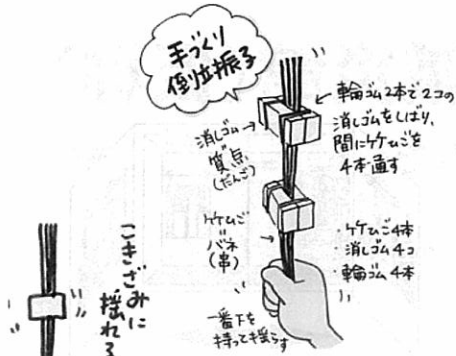 手づくり
倒立振子
輪ゴム2本で2コの
消しゴムをしばり、
間に竹ひごを
4本通す
消しゴム
質点
(だんご)
竹ひご
バネ
(串)
・竹ひご4本
・消しゴム4コ
・輪ゴム4本
一番下を
持って揺らす
こきざみに
揺れる